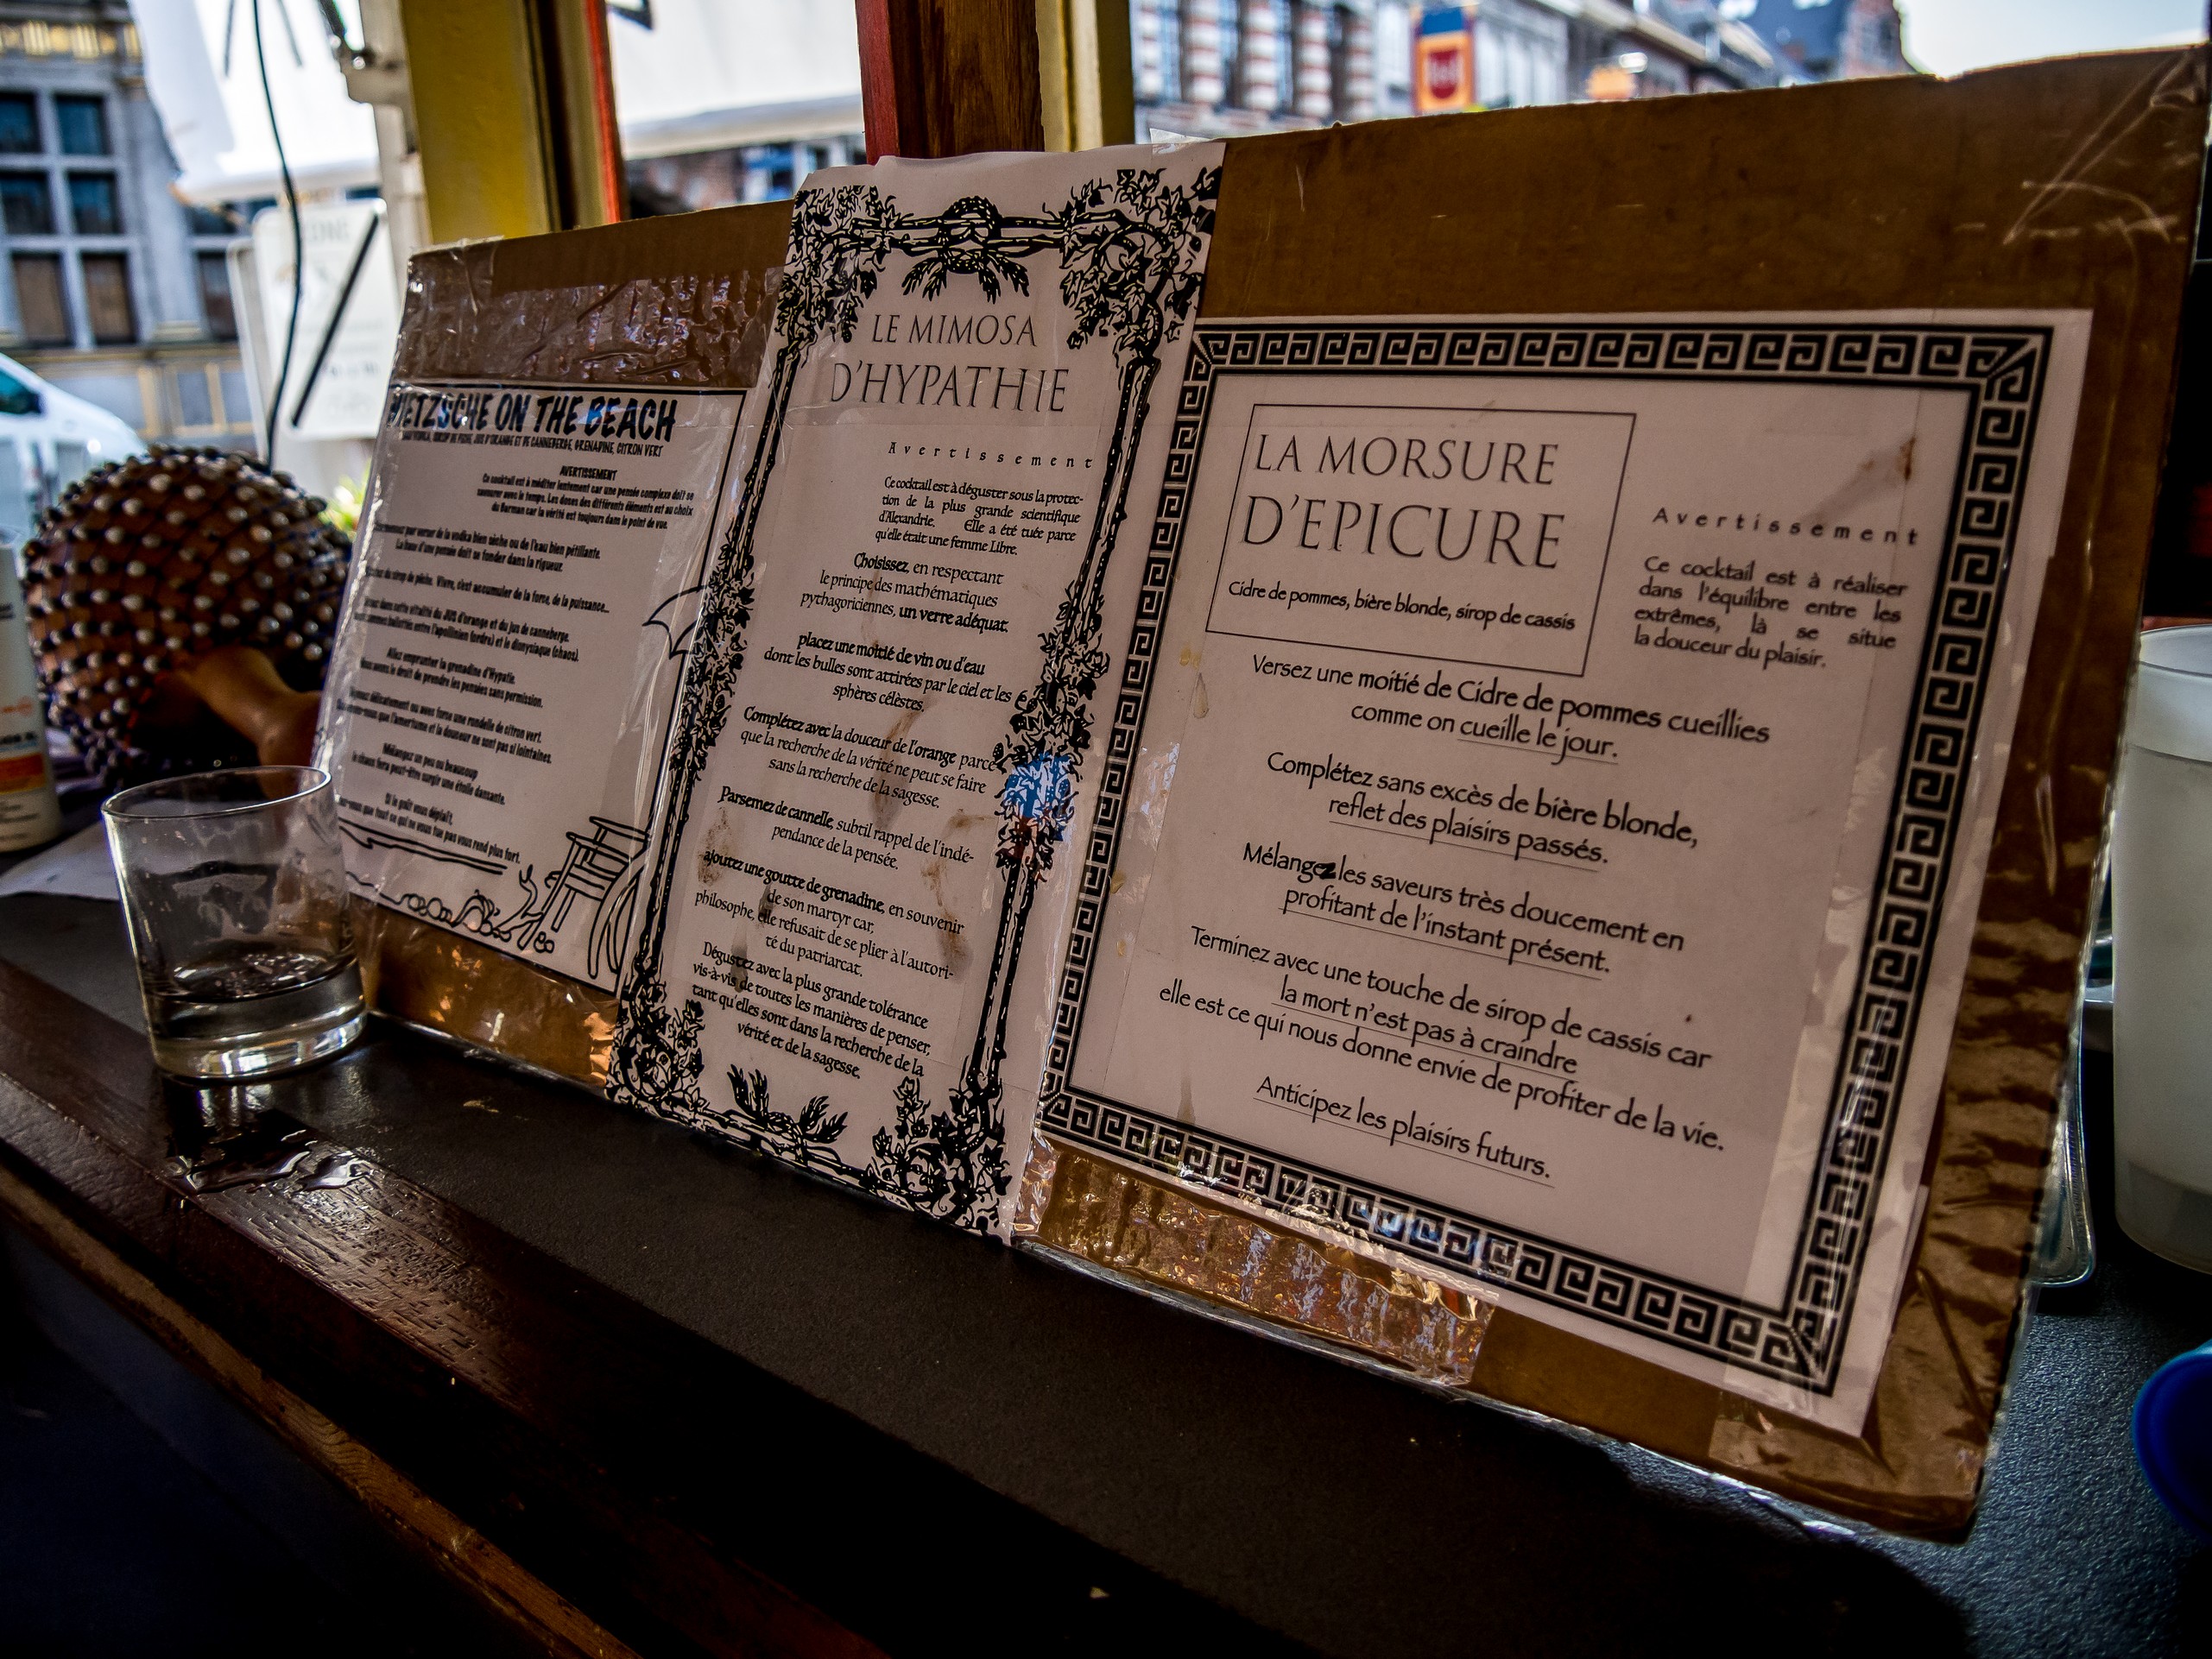 NIETZSCHE ON THE BEACH
EAU/VODKA, SIROP DE PÊCHE, JUS D'ORANGE ET DE CANNEBERGE, GRENADINE, CITRON VERT
AVERTISSEMENT
Ce cocktail est à méditer lentement car une pensée complexe doit se
savourer avec le temps. Les doses des différents éléments est au choix
du Barman car la vérité est toujours dans le point de vue.
par verser de la vodka bien sèche ou de l'eau bien pétillante.
La base d'une pensée doit se fonder dans la rigueur.
du sirop de pêche. Vivre, c'est accumuler de la force, de la puissance...
dans cette vitalité du JUS d'orange et du jus de canneberge.
entre l'apollinien (ordre) et le dionysiaque (chaos).
Allez emprunter la grenadine d'Hypatie.
avons le droit de prendre les pensées sans permission.
délicatement ou avec force une rondelle de citron vert.
que l'amertume et la douceur ne sont pas si lointaines.
Mélangez un peu ou beaucoup
le chaos fera peut-être surgir une étoile dansante.
Si le goût vous déplaît,
que tout ce qui ne vous tue pas vous rend plus fort.
LE MIMOSA
D'HYPATHIE
Avertissement
Ce cocktail est à déguster sous la protec-
tion de la plus grande scientifique
d'Alexandrie. Elle a été tuée parce
qu'elle était une femme Libre.
Choisissez, en respectant
le principe des mathématiques
pythagoriciennes, un verre adéquat.
placez une moitié de vin ou d'eau
dont les bulles sont attirées par le ciel et les
sphères célèstes.
Complétez avec la douceur de l'orange parce
que la recherche de la vérité ne peut se faire
sans la recherche de la sagesse.
Parsemez de cannelle, subtil rappel de l'indé-
pendance de la pensée.
ajoutez une goutte de grenadine, en souvenir
de son martyr car,
philosophe, elle refusait de se plier à l'autori-
té du patriarcat.
Dégustez avec la plus grande tolérance
vis-à-vis de toutes les manières de penser,
tant qu'elles sont dans la recherche de la
vérité et de la sagesse.
LA MORSURE
D'EPICURE
Cidre de pommes, bière blonde, sirop de cassis
Avertissement
Ce cocktail est à réaliser
dans l'équilibre entre les
extrêmes, là se situe
la douceur du plaisir.
Versez une moitié de Cidre de pommes cueillies
comme on cueille le jour.
Complétez sans excès de bière blonde,
reflet des plaisirs passés.
Mélangez les saveurs très doucement en
profitant de l'instant présent.
Terminez avec une touche de sirop de cassis car
la mort n'est pas à craindre
elle est ce qui nous donne envie de profiter de la vie.
Anticipez les plaisirs futurs.